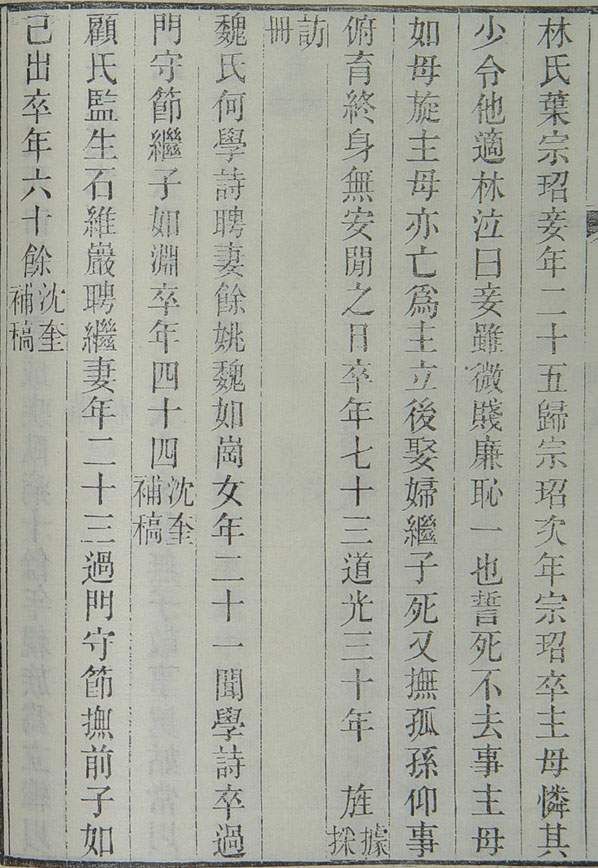 林氏葉宗玿妾年二十五歸宗玿次年宗玿卒主母憐其
少令他適林泣曰妾雖微賤廉恥一也誓死不去事主母
如母旋主母亦亡爲主立後娶婦繼子死又撫孤孫仰事
俯育終身無安閒之日卒年七十三道光三十年 旌據採
訪冊
魏氏何學詩聘妻餘姚魏如崗女年二十一聞學詩卒過
門守節繼子如淵卒年四十四沈奎補稿
顧氏監生石維巖聘繼妻年二十三過門守節撫前子如
己出卒年六十餘沈奎補稿